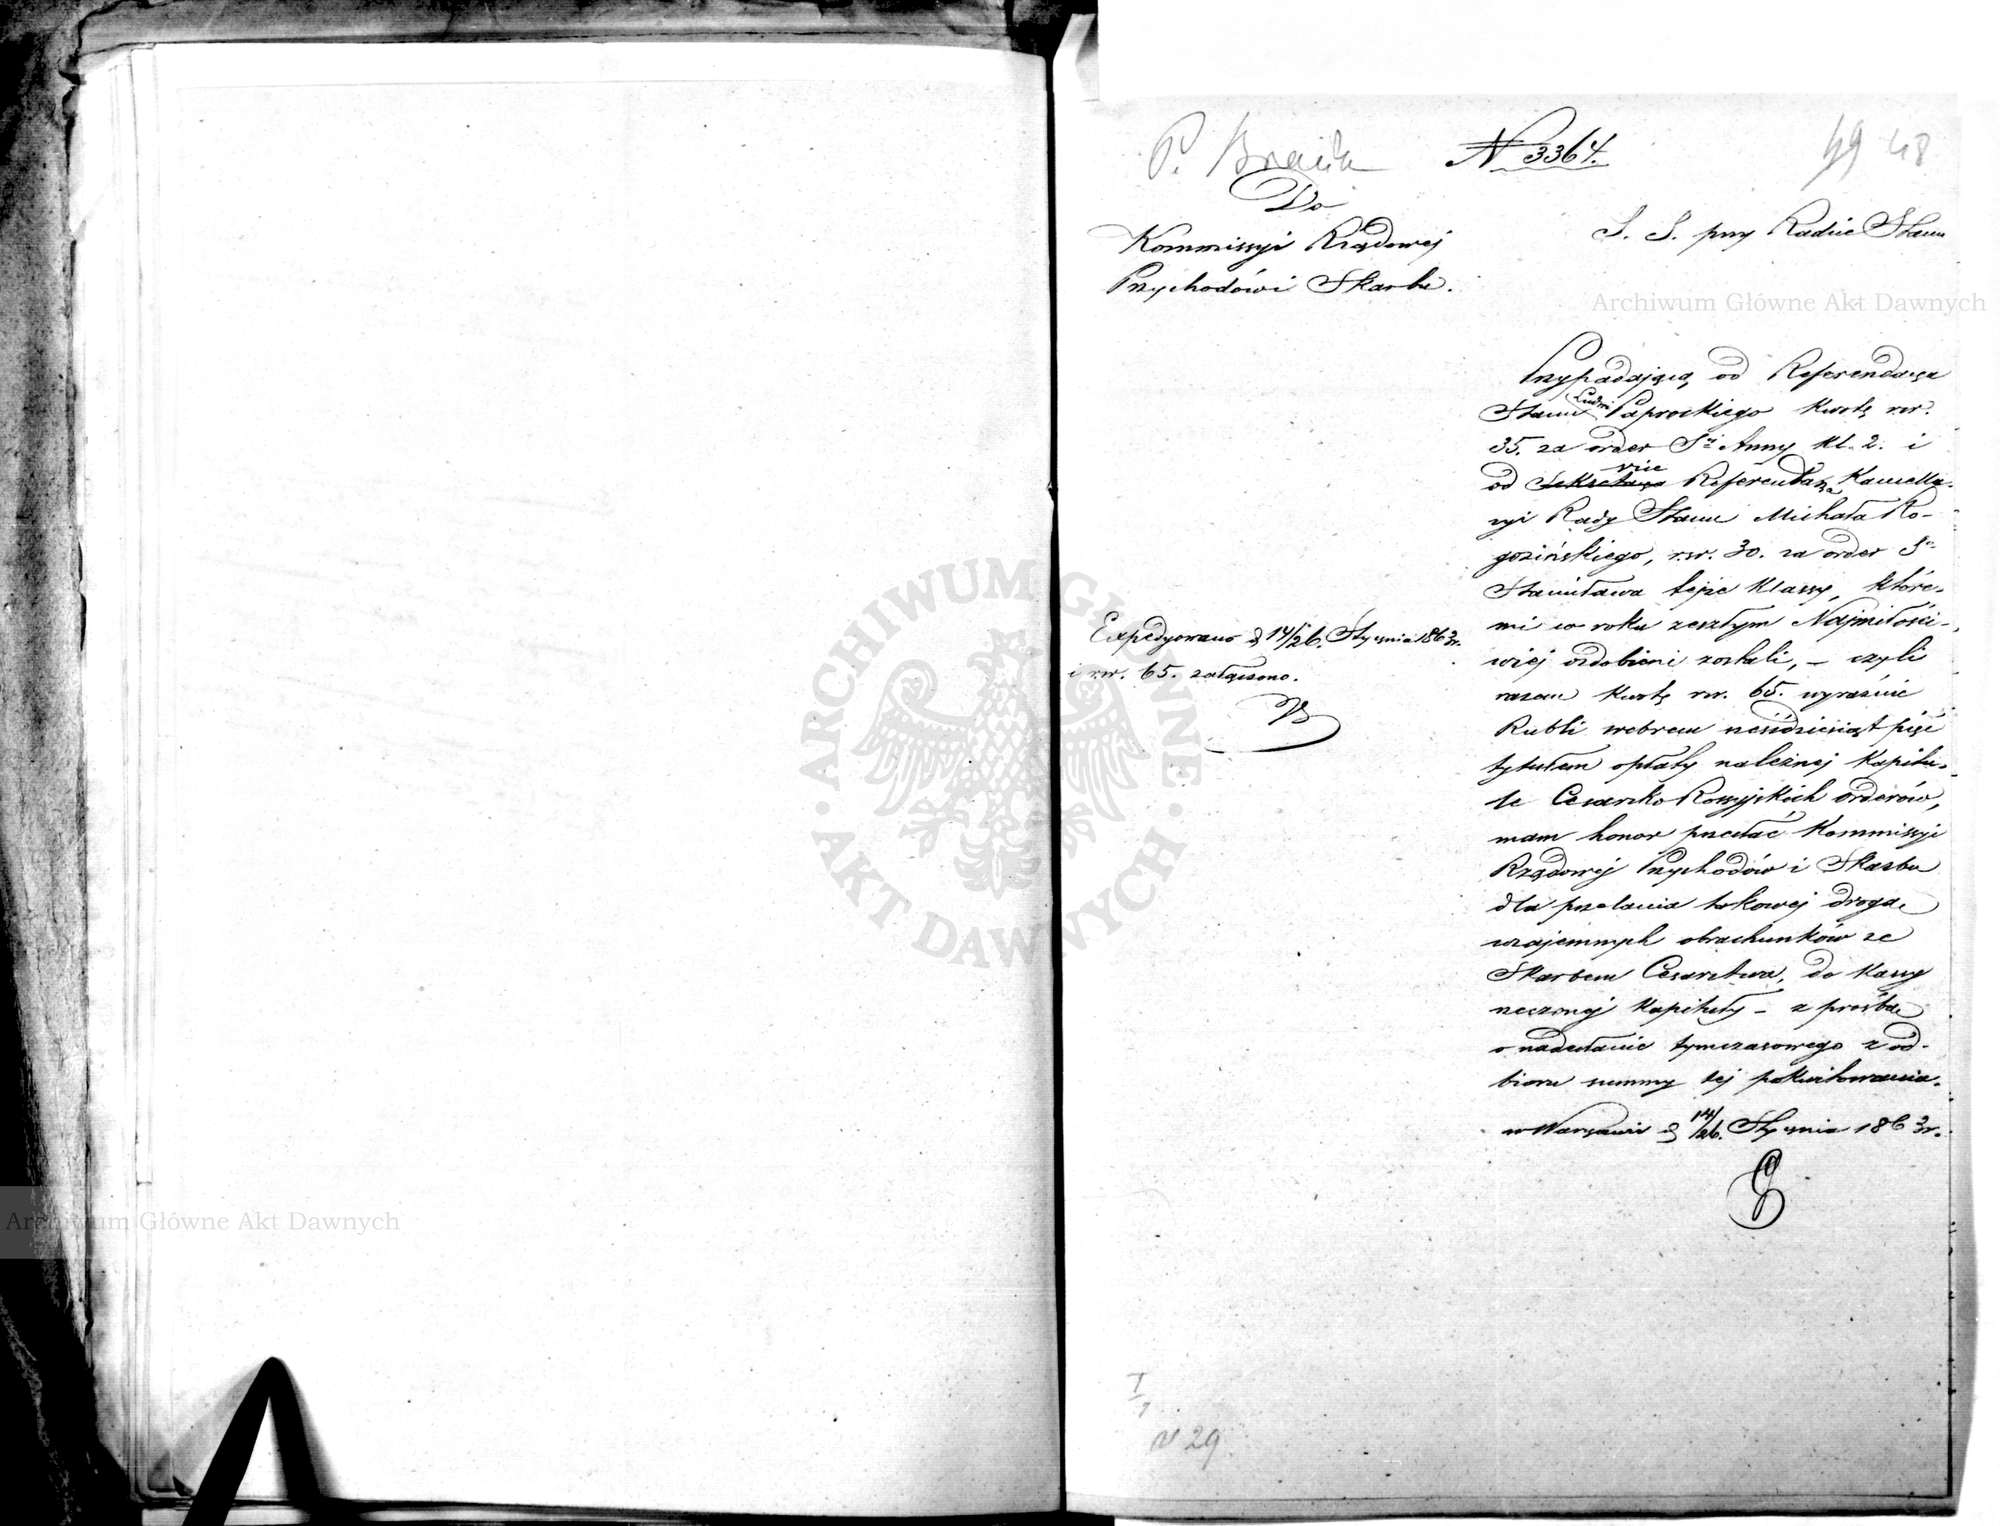 P.
N 3364.
49 48
Do
Kommissyi Rządowej
Przychodów i Skarbu.
S. S. przy Radzie Stanu
Przypadającą od Referendarza
Stanu Ludwi Paprockiego kwotę rsr.
35. za order Sej Anny kl. 2. i
od Sekretarza vice Referendarza Kancella-
ryi Rady Stanu Michała Ro-
gozińskiego, rsr. 30. za order Sgo
Stanisława tejże klassy, które-
mi w roku zeszłym Najmiłości-
wiej ozdobieni zostali, – czyli
razem kwotę rsr. 65. wyraźnie
Rubli srebrem sześćdziesiąt pięć
tytułem opłaty należnej Kapitu-
le Cesarsko Rossyjskich orderów,
mam honor przesłać Kommissyi
Rządowej Przychodów i Skarbu
dla przelania takowej drogą
wzajemnych obrachunków ze
Skarbem Cesarstwa, do kassy
rzeczonej Kapituły – z prośbą
o nadesłanie tymczasowego z od-
bioru summy tej pokwitowania.
w Warszawie d 14/26. Stycznia 1863 r.
Expedyowano d 14/26. Stycznia 1863 r.
i rsr. 65. załączono.
I/1
N 29
Archiwum Główne Akt Dawnych
Archiwum Główne Akt Dawnych
ARCHIWUM GŁÓWNE
AKT DAWNYCH